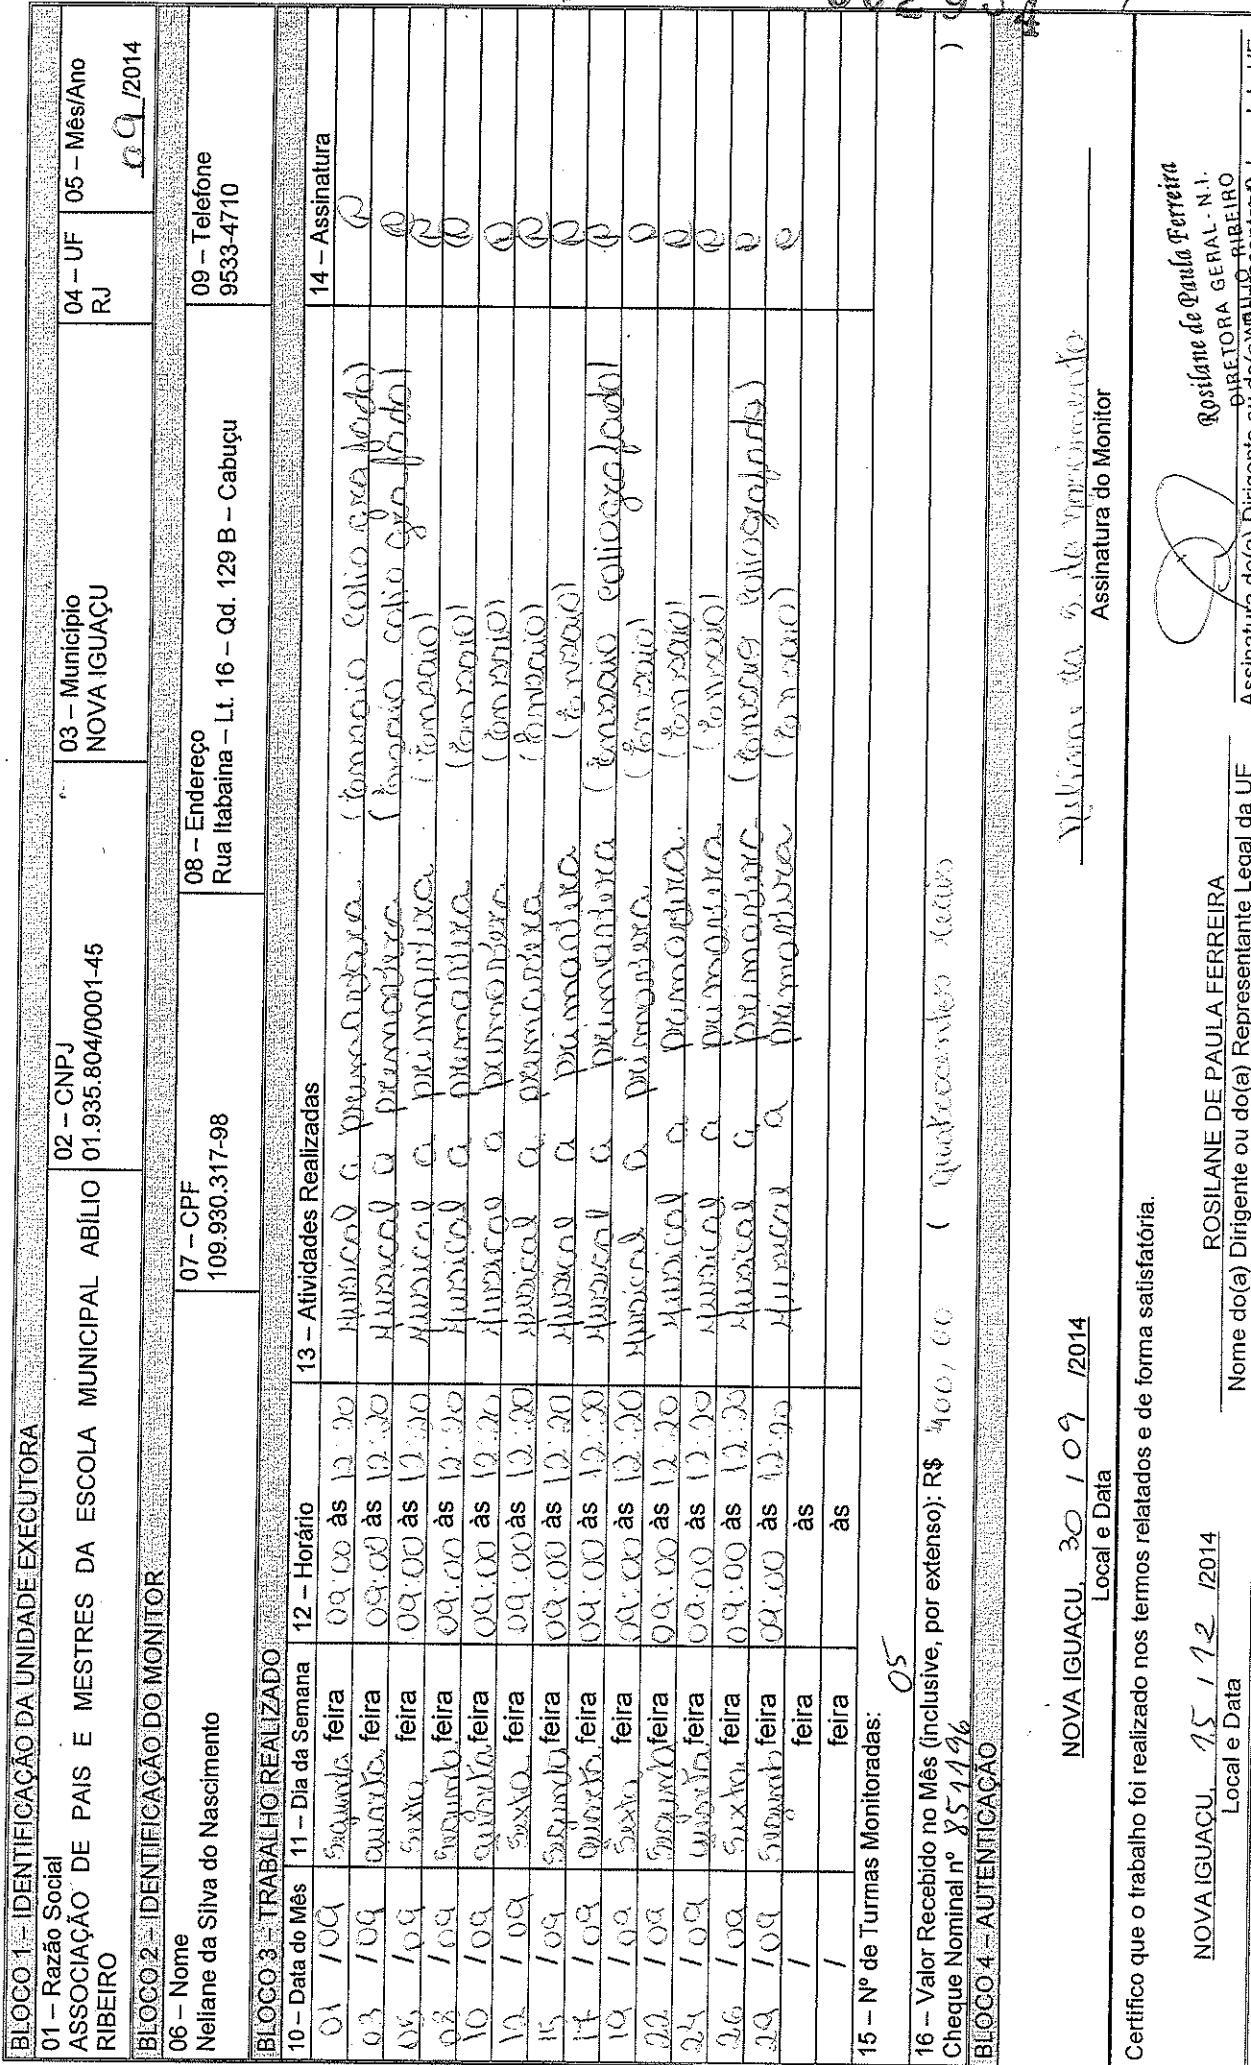 BLOCO 1 – IDENTIFICAÇÃO DA UNIDADE EXECUTORA
01 – Razão Social
ASSOCIAÇÃO DE PAIS E MESTRES DA ESCOLA MUNICIPAL ABÍLIO RIBEIRO
02 – CNPJ
01.935.804/0001-45
03 – Município
NOVA IGUAÇU
04 – UF
RJ
05 – Mês/Ano
09 /2014
BLOCO 2 – IDENTIFICAÇÃO DO MONITOR
06 – Nome
Neliane da Silva do Nascimento
07 – CPF
109.930.317-98
08 – Endereço
Rua Itabaina – Lt. 16 – Qd. 129 B – Cabuçu
09 – Telefone
9533-4710
BLOCO 3 – TRABALHO REALIZADO
10 – Data do Mês 11 – Dia da Semana 12 – Horário 13 – Atividades Realizadas 14 – Assinatura
01 /09 Segunda feira 09:00 às 12:20 Musical a primavera (ensaio coliografado)
03 /09 quarta feira 09:00 às 12:20 Musical a primavera (ensaio coliografado)
05 /09 Sexta feira 09:00 às 12:20 Musical a primavera (ensaio)
08 /09 Segunda feira 09:00 às 12:20 Musical a primavera (ensaio)
10 /09 quarta feira 09:00 às 12:20 Musical a primavera (ensaio)
12 /09 Sexta feira 09:00 às 12:20 Musical a primavera (ensaio)
15 /09 Segunda feira 09:00 às 12:20 Musical a primavera (ensaio)
17 /09 quarta feira 09:00 às 12:20 Musical a primavera (ensaio coliografado)
19 /09 Sexta feira 09:00 às 12:20 Musical a primavera (ensaio)
22 /09 Segunda feira 09:00 às 12:20 Musical a primavera (ensaio)
24 /09 quarta feira 09:00 às 12:20 Musical a primavera (ensaio)
26 /09 Sexta feira 09:00 às 12:20 Musical a primavera (ensaio coliografado)
29 /09 Segunda feira 09:00 às 12:20 Musical a primavera (ensaio)
/ feira às
/ feira às
15 – Nº de Turmas Monitoradas: 05
16 – Valor Recebido no Mês (inclusive, por extenso): R$ 400,00 ( quatrocentos reais )
Cheque Nominal nº 851196
BLOCO 4 – AUTENTICAÇÃO
NOVA IGUAÇU, 30 / 09 /2014
Local e Data
Neliane da S. do Nascimento
Assinatura do Monitor
Certifico que o trabalho foi realizado nos termos relatados e de forma satisfatória.
NOVA IGUAÇU, 15 / 12 /2014
Local e Data
ROSILANE DE PAULA FERREIRA
Nome do(a) Dirigente ou do(a) Representante Legal da UE
Rosilane de Paula Ferreira
DIRETORA GERAL - N.I.
Assinatura do(a) Dirigente ou do(a)